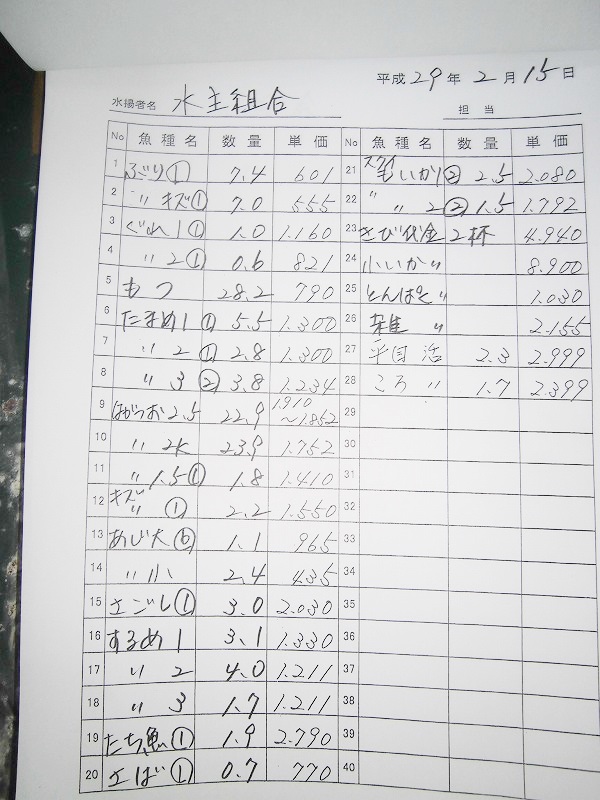 平成 29 年 2 月 15 日
水揚者名 水主組合
担当
No 魚種名 数量 単価 No 魚種名 数量 単価
1 ぶり① 7.4 601 21 スクイ もいか1② 2.5 2.080
2 〃 キズ① 7.0 555 22 〃 〃 2② 1.5 1.792
3 ぐれ1① 1.0 1.160 23 さび代金 2杯 4.940
4 〃 2① 0.6 821 24 小いか 〃 8.900
5 もつ 28.2 790 25 とんぱそ 〃 1.030
6 たまめ1① 5.5 1.300 26 雑 〃 2.155
7 〃 2① 2.8 1.300 27 平目 活 2.3 2.999
8 〃 3② 3.8 1.234 28 ころ 〃 1.7 2.399
9 はがつお2.5 22.9 1.910 ～1.852 29
10 〃 2K 23.9 1.752 30
11 〃 1.5① 1.8 1.410 31
12 キズ 〃 ① 2.2 1.550 32
13 あじ大⑥ 1.1 965 33
14 〃 小 2.4 435 34
15 さごし① 3.0 2.030 35
16 するめ1 3.1 1.330 36
17 〃 2 4.0 1.211 37
18 〃 3 1.7 1.211 38
19 たち魚① 1.9 2.790 39
20 さば① 0.7 770 40